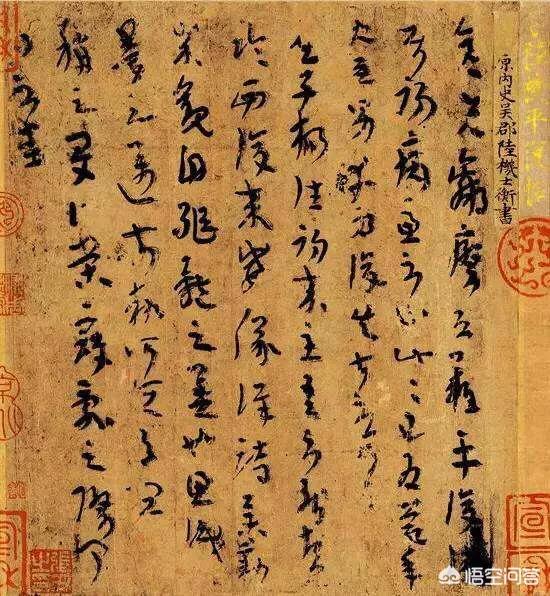 陸機平復帖
原內史吳郡陸機士衡書
彦先羸瘵恐難平復
往屬初病慮不止此此已為慶承
使唯男幸為復失前憂耳
子楊往初來主吾不能盡
臨西復來威儀詳跱舉動
成觀自軀體之美也思識
量之邁前執所恒有宜
稱之夏榮寇亂之際聞
問不悉
悟空问答